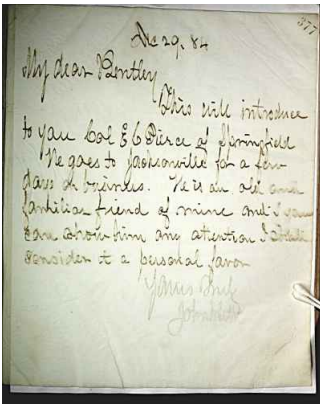 377
Dec 29. 84
My dear Bentley
This will introduce
to you Col E C Pierce of Springfield
He goes to Jacksonville for a few
days on business. He is an old and
familiar friend of mine and if you
can show him any attention I shall
consider it a personal favor
Yours truly